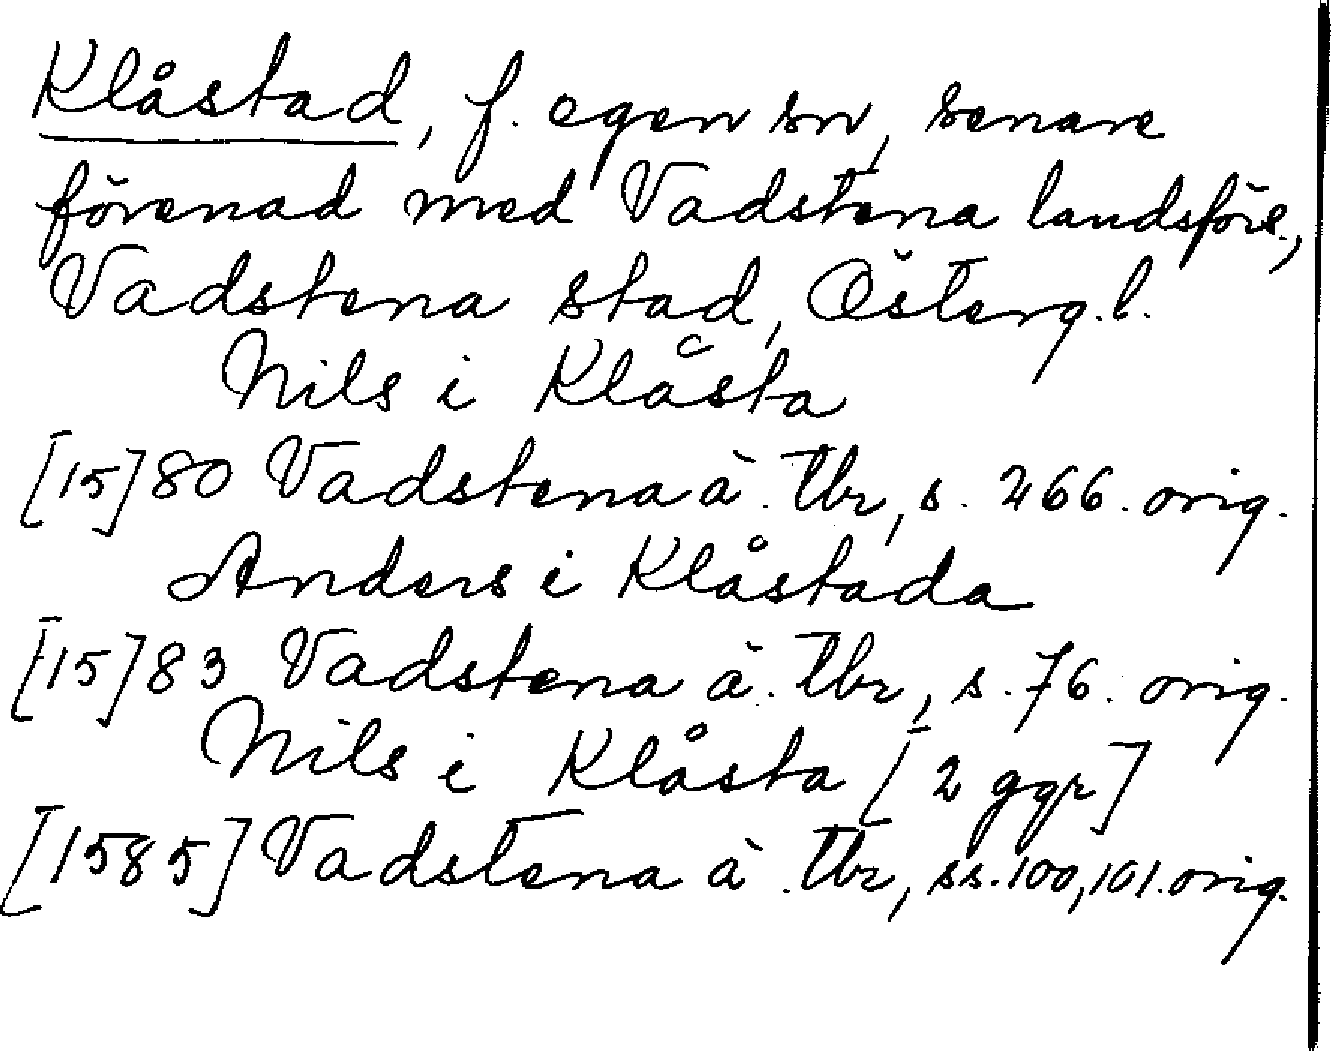 Klåstad, f. egen sn, senare
förenad med Vadstena landsförs.,
Vadstena stad, Österg.l.
Nils i Klåsta
[15]80 Vadstena ä. tbr, s. 266. orig.
Anders i Klåstada
[15]83 Vadstena ä. tbr, s. 76. orig.
Nils i Klåsta [2 ggr]
[1585] Vadstena ä. tbr, ss. 100, 101. orig.